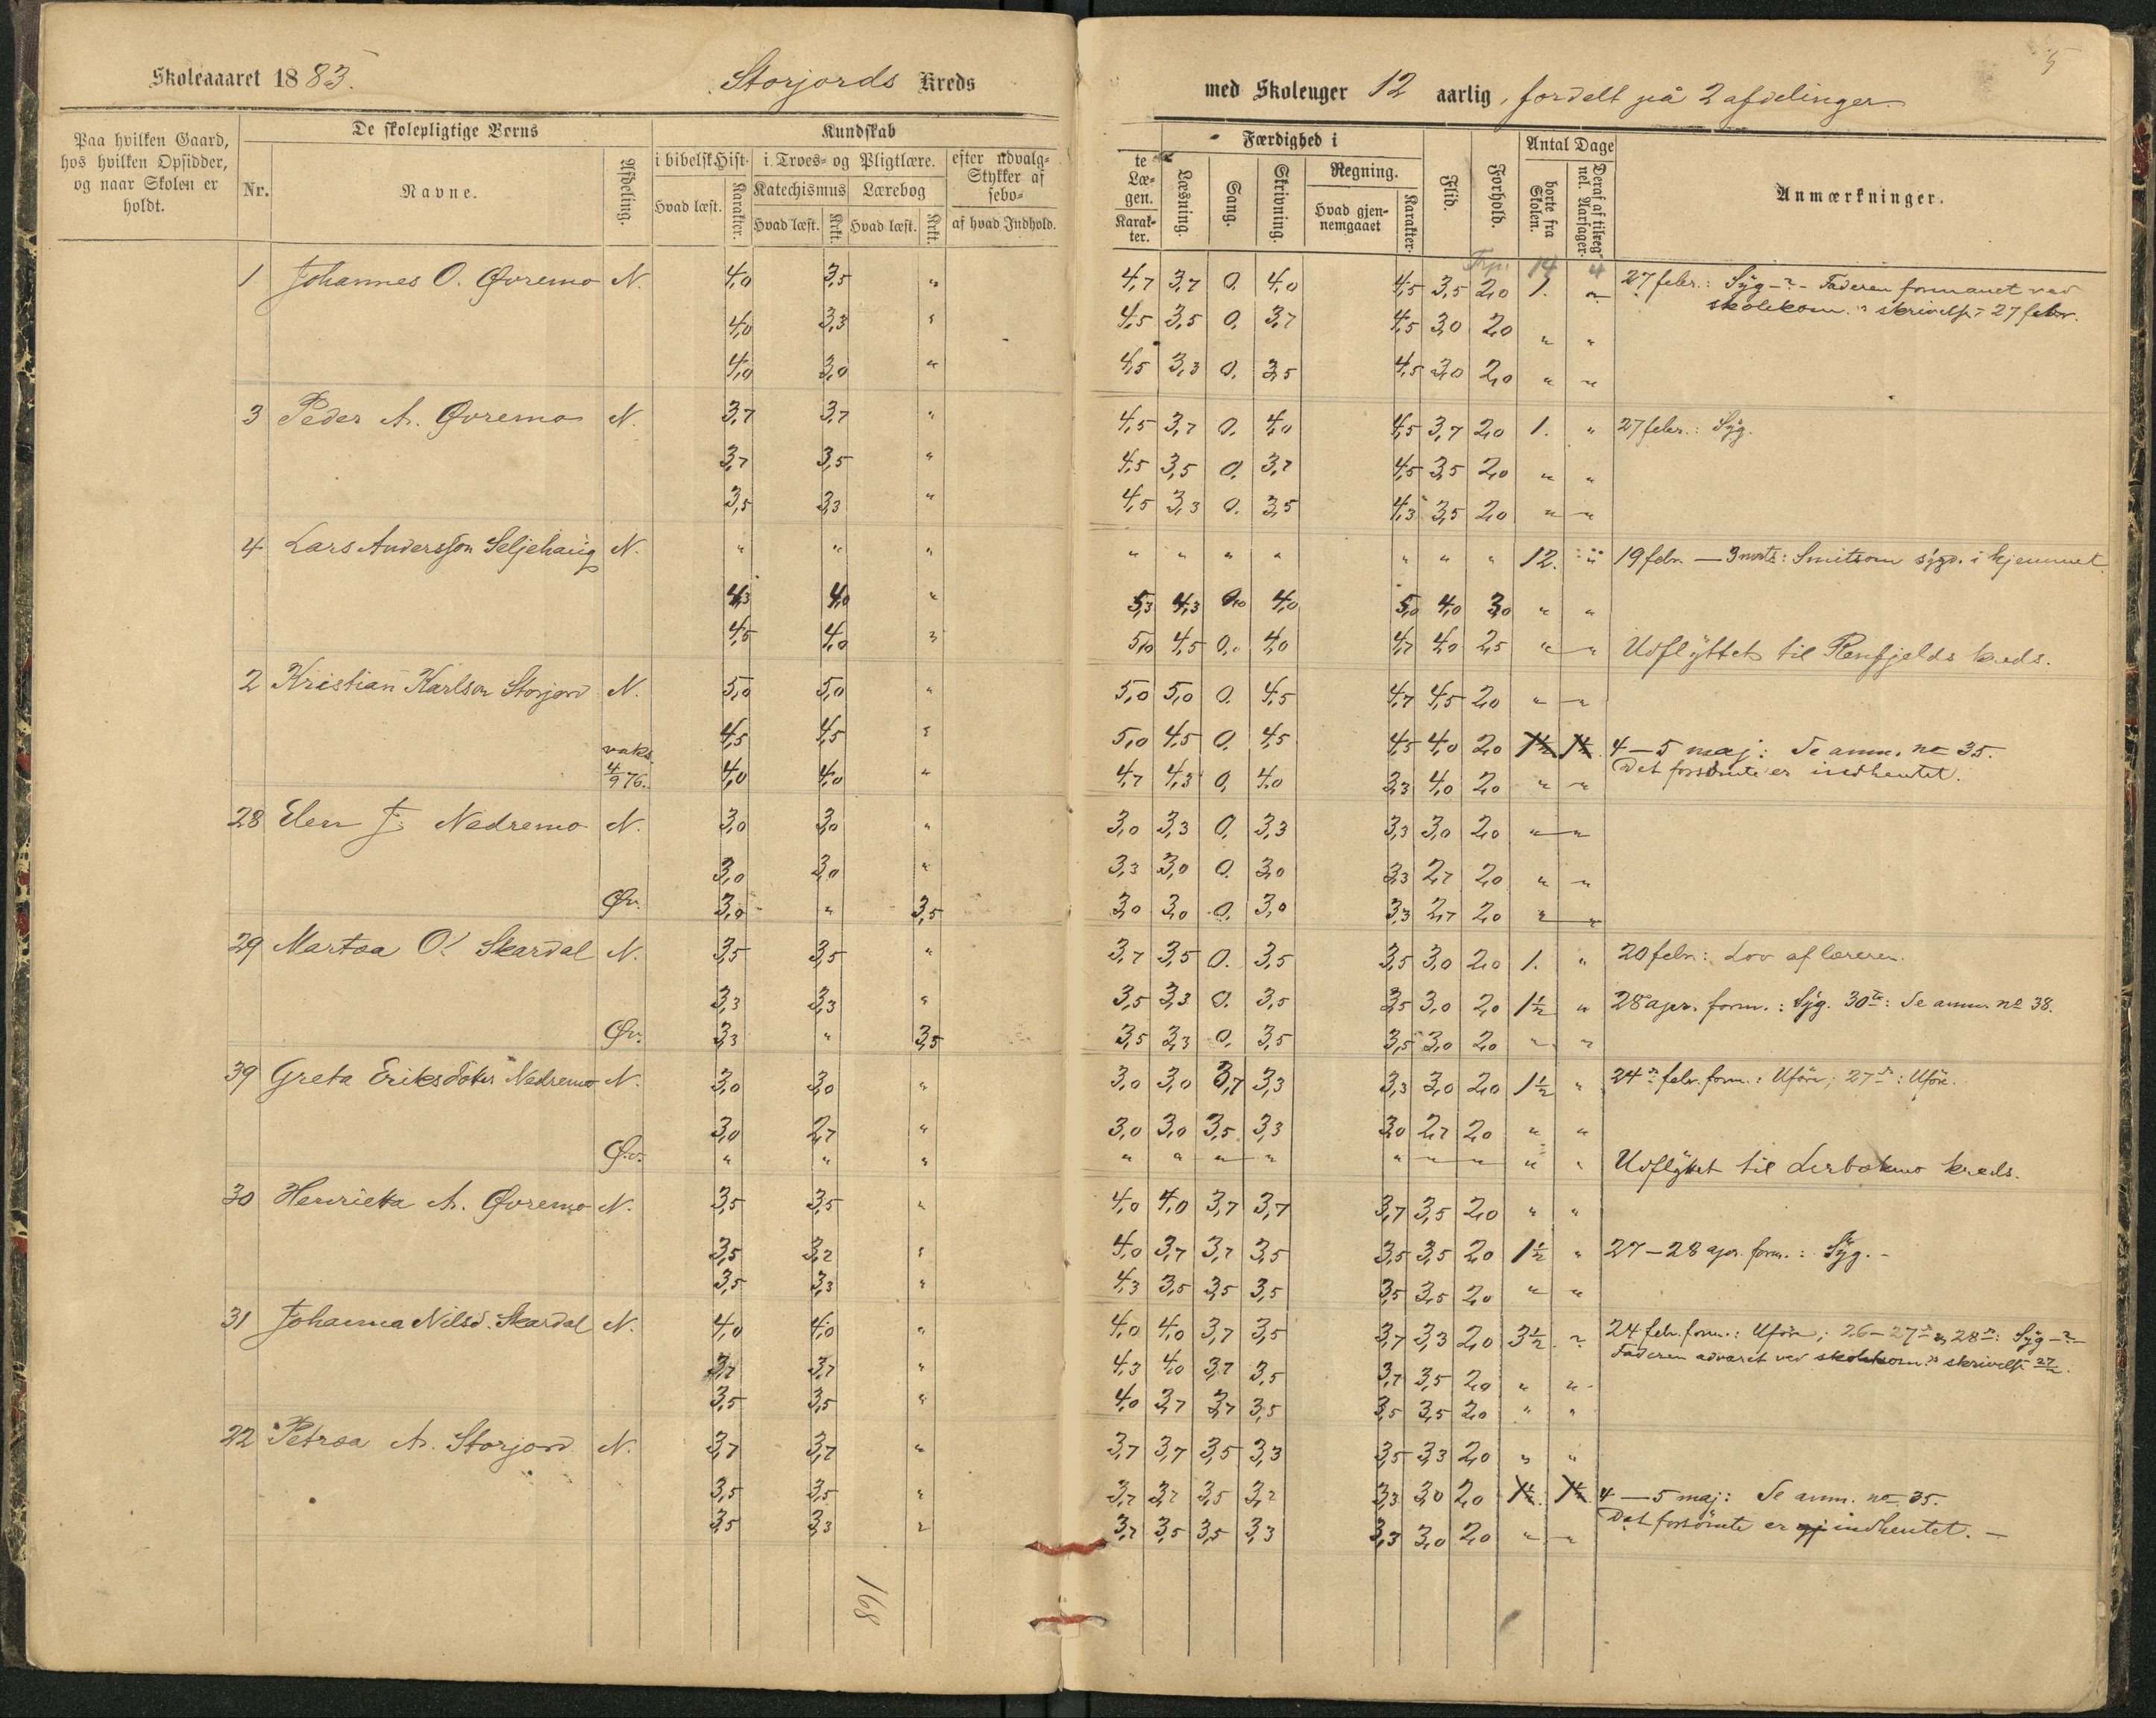 5
Skoleaaret 1883. Storjords Kreds med Skoleuger 12 aarlig, fordelt på 2 afdelinger
Paa hvilken Gaard, hos hvilken Opsidder, og naar Skolen er holdt.
De skolepligtige Børns
Nr. Navne. Afdeling.
Kundskab
i bibelsk Hist. i Troes- og Pligtlære. efter udvalg-
te Læ-
gen.
Stykker af
sebo-
Hvad læst. Karakter. Katechismus Lærebog
Hvad læst. Krkt. Hvad læst. Krkt. af hvad Indhold. Karak-
ter.
Færdighed i
Læsning. Sang. Skrivning. Regning.
Hvad gjen-
nemgaaet Karakter.
Flid. Forhold. Antal Dage
borte fra Skolen. Deraf af tilreg-
nel. Aarsager.
Anmærkninger.
14 4
1 Johannes O. Øvremo N. 4,0 3,5 " 4,7 3,7 0. 4,0 4,5 3,5 2,0 1. " 27 febr.: Syg-?- Faderen formanet ved
skolekom.s skrivelse 27 febr.
4,0 3,3 " 4,5 3,5 0. 3,7 4,5 3,0 2,0 " "
4,0 3,0 " 4,5 3,3 0. 3,5 4,5 3,0 2,0 " "
3 Peder A. Øvremo N. 3,7 3,7 " 4,5 3,7 0. 4,0 4,5 3,7 2,0 1. " 27 febr.: Syg.
3,7 3,5 " 4,5 3,5 0. 3,7 4,5 3,5 2,0 " "
3,5 3,3 " 4,5 3,3 0. 3,5 4,3 3,5 2,0 " "
4 Lars Andersson Seljehaug N. " " " " " " " " " " 12. " 19 febr. — 3 marts: Smitsom sygd. i hjemmet.
4,3 4,0 " 5,3 4,3 0,0 4,0 5,0 4,0 3,0 " "
4,5 4,0 " 5,0 4,5 0. 4,0 4,7 4,0 2,5 " " Udflyttet til Renfjelds kreds.
2 Kristian Karlson Storjord N. 5,0 5,0 " 5,0 5,0 0. 4,5 4,7 4,5 2,0 " "
4,5 4,5 " 5,0 4,5 0. 4,5 4,5 4,0 2,0 1½ 1½ 4—5 maj: Se anm. no 35.
Det forsömte er indhentet.
vaks.
4/9 76. 4,0 4,0 " 4,7 4,3 0. 4,0 3,3 4,0 2,0 " "
28 Elen J. Nedremo N. 3,0 3,0 " 3,0 3,3 0. 3,3 3,3 3,0 2,0 " "
3,0 3,0 " 3,3 3,0 0. 3,0 3,3 2,7 2,0 " "
Øv. 3,0 " 3,5 3,0 3,0 0. 3,0 3,3 2,7 2,0 " "
29 Martha O. Skardal N. 3,5 3,5 " 3,7 3,5 0. 3,5 3,5 3,0 2,0 1. " 20 febr.: Lov af læreren.
3,3 3,3 " 3,5 3,3 0. 3,5 3,5 3,0 2,0 1½ " 28 apr. form.: Syg. 30te: Se anm. no 38.
Øv. 3,3 " 3,5 3,5 3,3 0. 3,5 3,5 3,0 2,0 " "
39 Greta Eriksdatter Nedremo N. 3,0 3,0 " 3,0 3,0 3,7 3,3 3,3 3,0 2,0 1½ " 24de febr. form.: Uföre; 27de: Uföre.
3,0 2,7 " 3,0 3,0 3,5 3,3 3,0 2,7 2,0 " "
Øv. " " " " " " " " " " " " Udflyttet til Lerbakmo kreds.
30 Henrieta A. Øvremo N. 3,5 3,5 " 4,0 4,0 3,7 3,7 3,7 3,5 2,0 " "
3,5 3,2 " 4,0 3,7 3,7 3,5 3,5 3,5 2,0 1½ " 27—28 apr. form.: Syg.-
3,5 3,3 " 4,3 3,5 3,5 3,5 3,5 3,5 2,0 " "
31 Johanna Nilsd. Skardal N. 4,0 4,0 " 4,0 4,0 3,7 3,5 3,7 3,3 2,0 3½ " 24 febr. form.: Uföre; 26—27de & 28de: Syg-?-
Faderen advaret ved skolekom.s skrivelse 27/2.
3,7 3,7 " 4,3 4,0 3,7 3,5 3,7 3,5 2,0 " "
3,5 3,5 " 4,0 3,7 3,7 3,5 3,5 3,5 2,0 " "
22 Petrea A. Storjord N. 3,7 3,7 " 3,7 3,7 3,5 3,3 3,5 3,3 2,0 " "
3,5 3,5 " 3,7 3,7 3,5 3,2 3,3 3,0 2,0 1½. 1½. 4—5 maj: Se anm. no 35.
Det forsömte er ej indhentet. —
3,5 3,3 " 3,7 3,5 3,5 3,3 3,3 3,0 2,0 " "
168